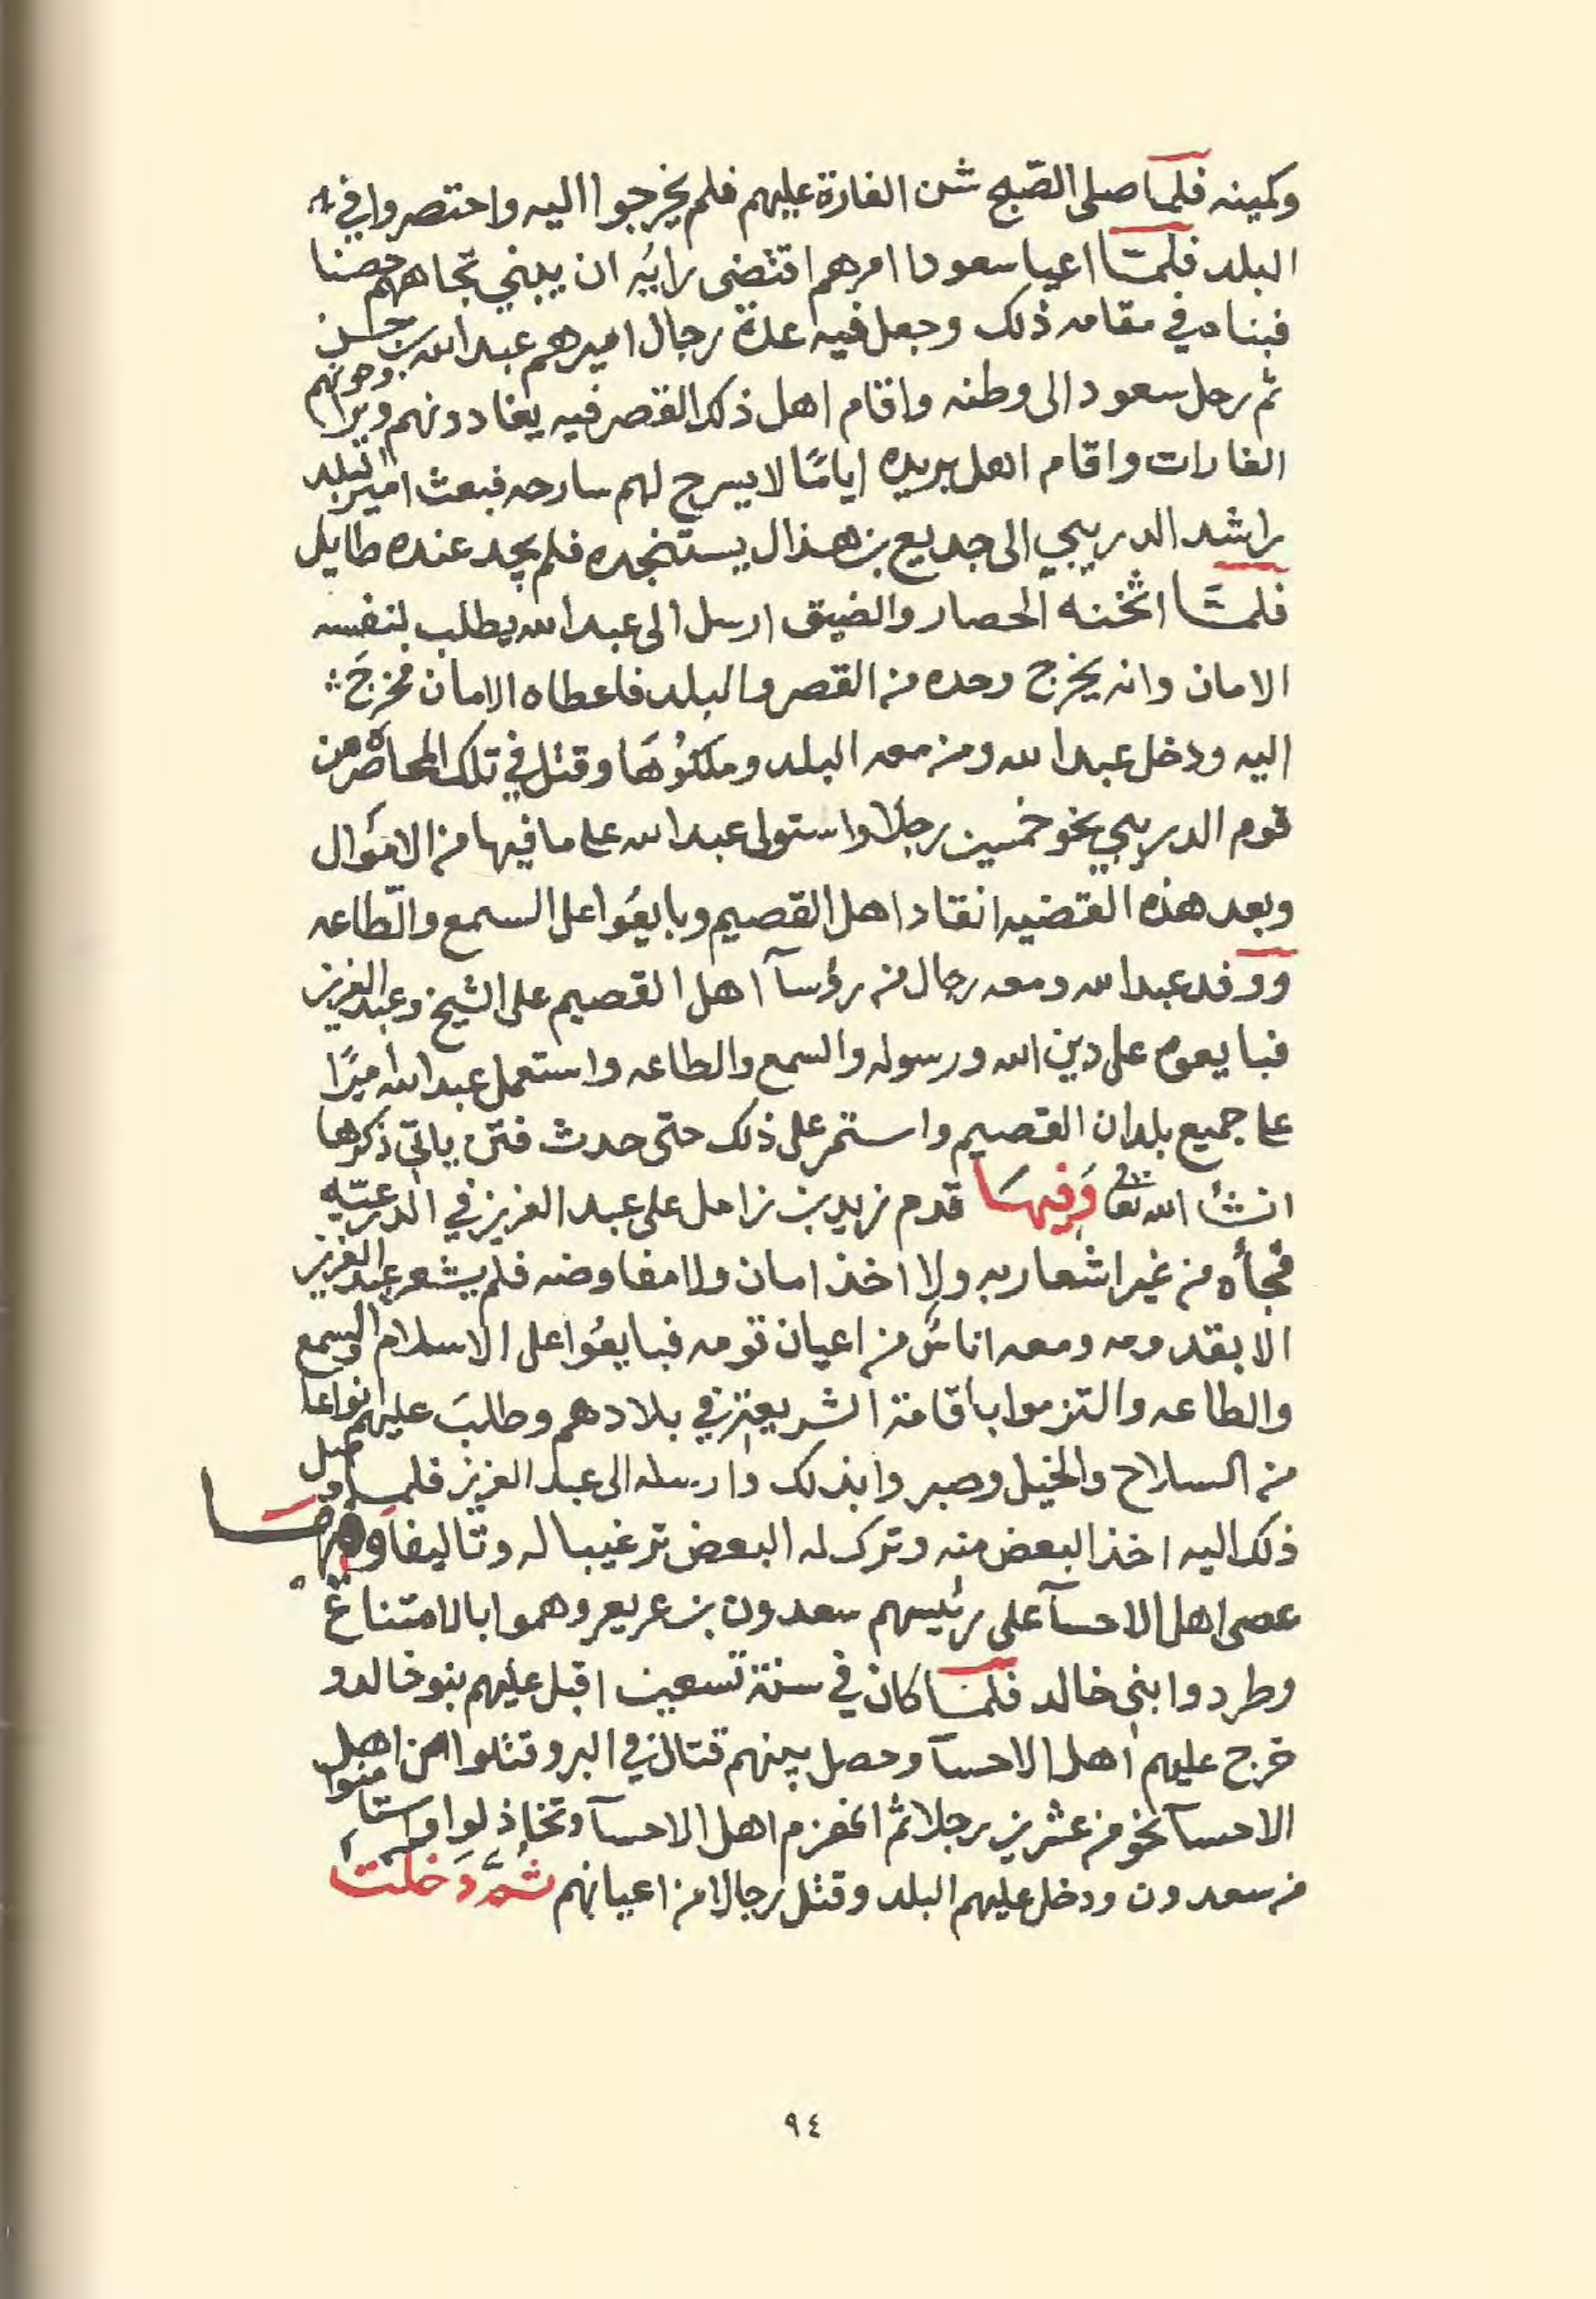 وكمينه فلما صلى الصبح شن الغارة عليهم فلم يخرجوا اليه واحتصروا في
البلد فلمّا اعيا سعودا امرهم اقتضى رايُه ان يبني تجاههم حصنا
فبناه في مقامه ذلك وجعل فيه عدة رجال اميرهم عبدالله بن حسن
ثم رحل سعود الى وطنه واقام اهل ذلك القصر فيه يغادونهم ويراوحونهم
الغارات واقام اهل بريده ايامًا لا يسرح لهم سارحه فبعث امير البلد
راشد الدريبي الى جديع بن هذال يستنجده فلم يجد عنده طايل
فلمَّا اثخنه الحصار والضيق ارسل الى عبدالله يطلب لنفسه
الامان وانه يخرج وحده من القصر والبلد فاعطاه الامان فخرَجَ
اليه ودخل عبدالله ومن معه البلد وملكوُهَا وقتل في تلك المحاصرة من
قوم الدريبي نحو خمسين رجلا واستولى عبدالله على ما فيها من الاموَال
وبعد هذه القضيه انقاد اهل القصيم وبايعُوا على السمع والطّاعه
ووفد عبدالله ومعه رجال من رؤسآ اهل القصيم على الشيخ وعبدالعزيز
فبايعوه على دين الله ورسوله والسمع والطاعه واستعمل عبدالله اميرًا
على جميع بلدان القصيم واستمر على ذلك حتى حدث فتن ياتي ذكرها
انشأ الله تعالى وَفيهَا قدم زيد بن زامل على عبدالعزيز في الدرعيّه
فجأه من غير اشعار به ولا اخذ امان ولا مفاوضه فلم يشعر عبدالعزيز
الا بقدومه ومعه اناسٌ من اعيان قومه فبايعُوا على الاسلام والسمع
والطاعه والتزموا باقامة الشريعة في بلادهم وطلبَ عليهم انواعا
من السلاح والخيل وصبروا بذلك وارسله الى عبدالعزيز فلما وصل
ذلك اليه اخذ البعض منه وترك له البعض ترغيبا له وتاليفا وفيهَا
عصى اهل الاحسآ على رئيسهم سعدون بن عريعر وهموا بالامتناع
وطردوا بني خالد فلمّا كان في سنة تسعين اقبل عليهم بنو خالد و
خرج عليهم اهل الاحسآ وحصل بينهم قتال في البر وقتلوا من اهل
الاحسآ نحو من عشرين رجلا ثم انهزم اهل الاحسآ وتخاذلوا واستامنوا
من سعدون ودخل عليهم البلد وقتل رجالا من اعيانهم ثمَّ دَخلَتَ
٩٤